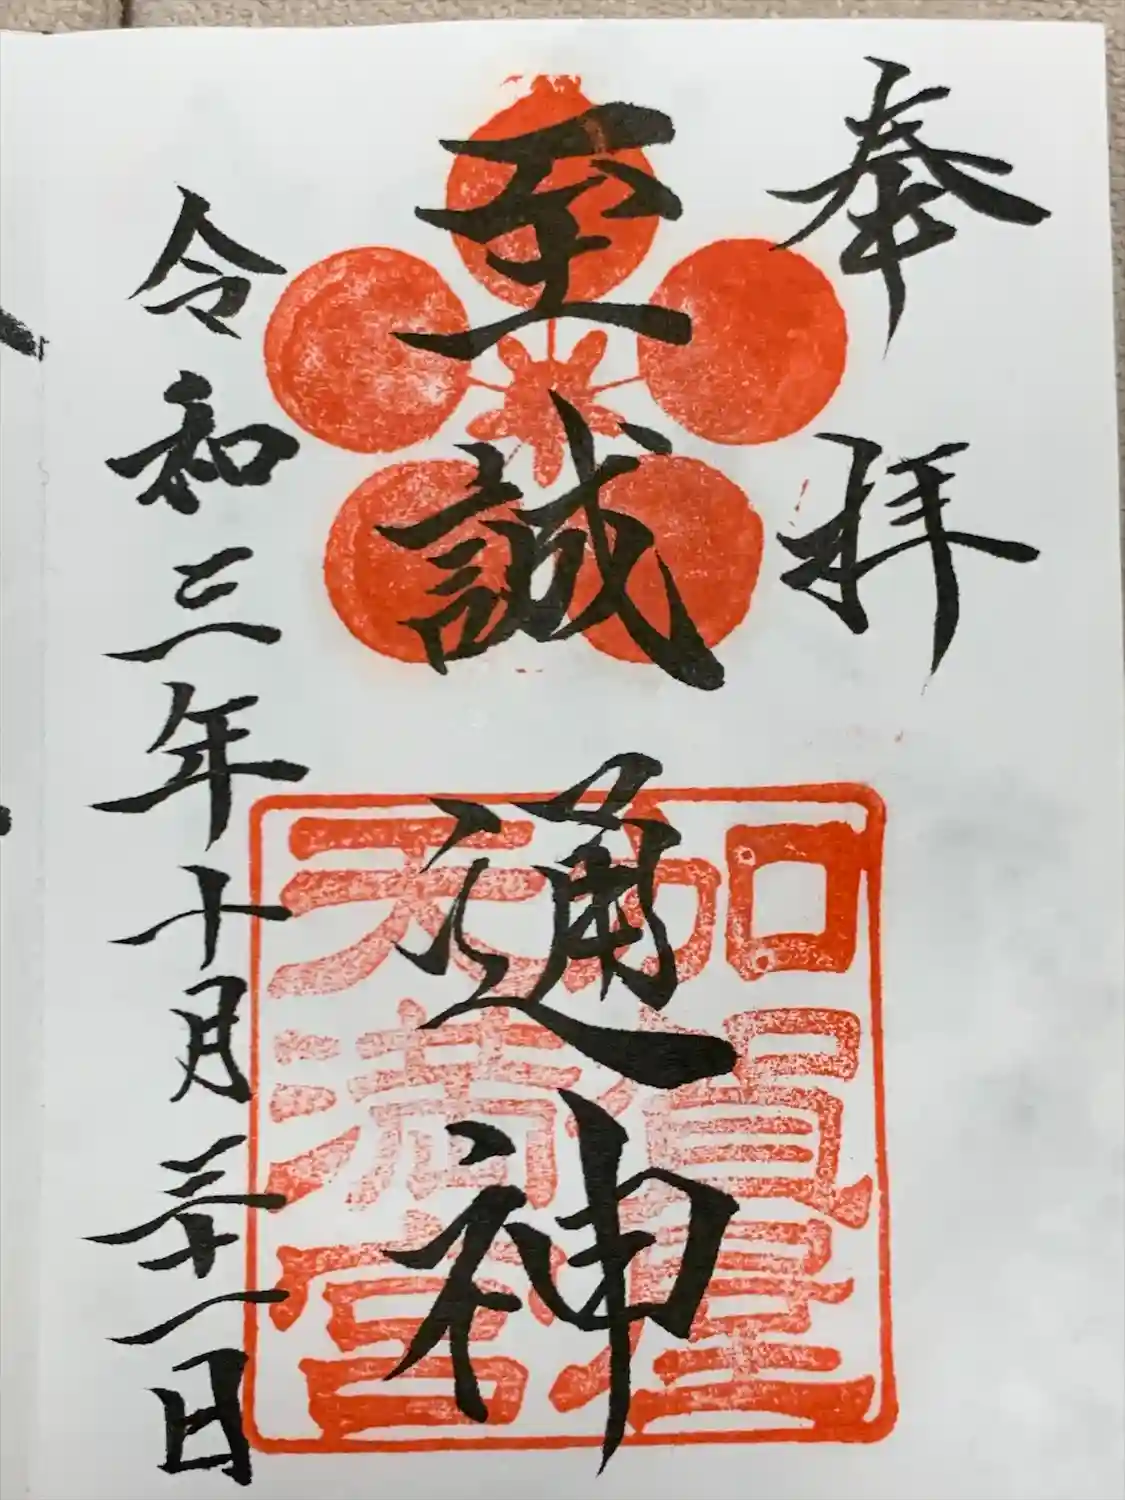 奉拝
至誠通神
加賀屋
天満宮
令和三年十月三十一日